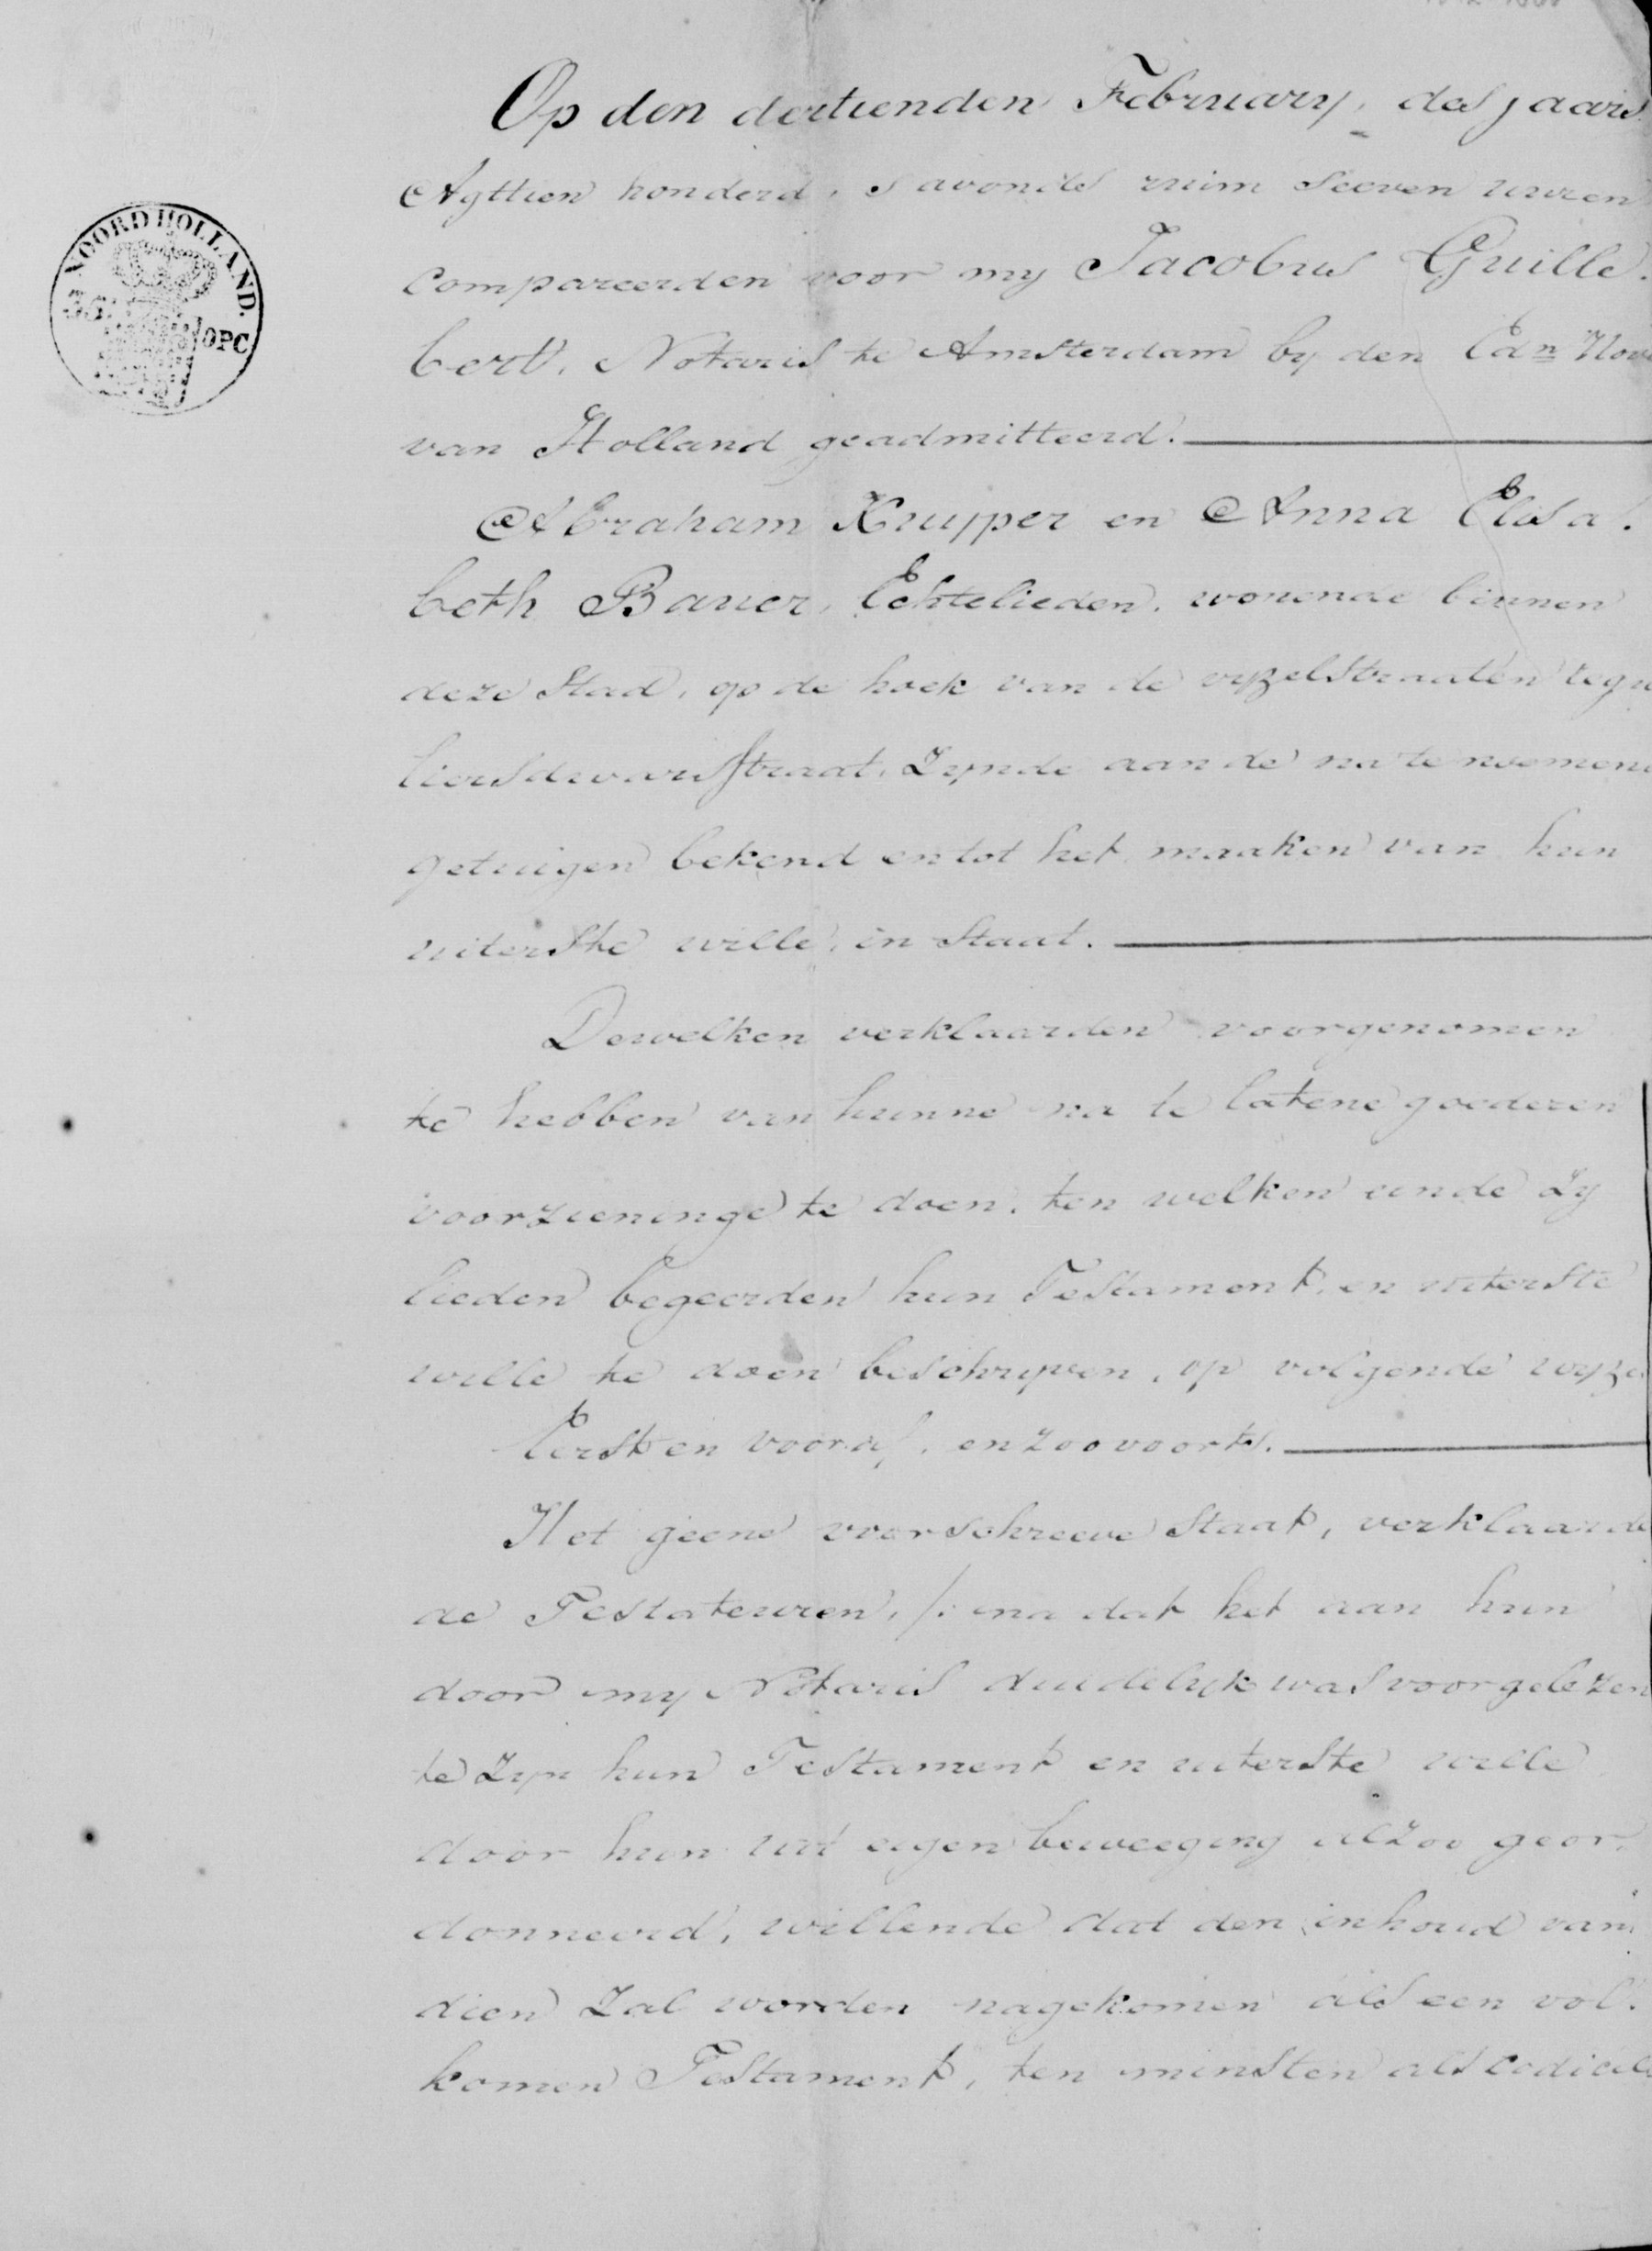 Op den dertienden February, des jaars
Agttien honderd, s avonds ruim seeven uuren
NOORD HOLLAND.
36
OPC
Compareerden voor my Jacobus Guille.
bert, Notaris te Amsterdam by den Edn Hove
van Holland geadmitteerd.
Abraham Kuyper en Anna Elisa.
beth Bauer, Echtelieden, wonende binnen
deze Stad, op de hoek van de vyzelstraaten regu
liersdwarsstraat, Zynde aan de na te noemene
getuigen bekend en tot het maaken van hun
uiterste wille, in Staat.
Dewelken verklaarden voorgenomen
te hebben van hunne na te latene goederen
voorzieninge te doen, ten welken einde Zy
lieden begeerden hun Testament, en uiterste
wille te doen beschryven, op volgende wyze
Eerst en vooraf, enzoovoorts.
Het geene voorschreeve Staat, verklaarde
de Testateuren, /: na dat het aan hun
door my Notaris duidelyk was voorgelezen
te Zyn hun Testament en uiterste wille
door hun uit eigen beweeging alzoo geor.
donneerd, willende dat den inhoud van
dien Zal worden nagekomen als een vol.
komen Testament, ten minsten als codicil